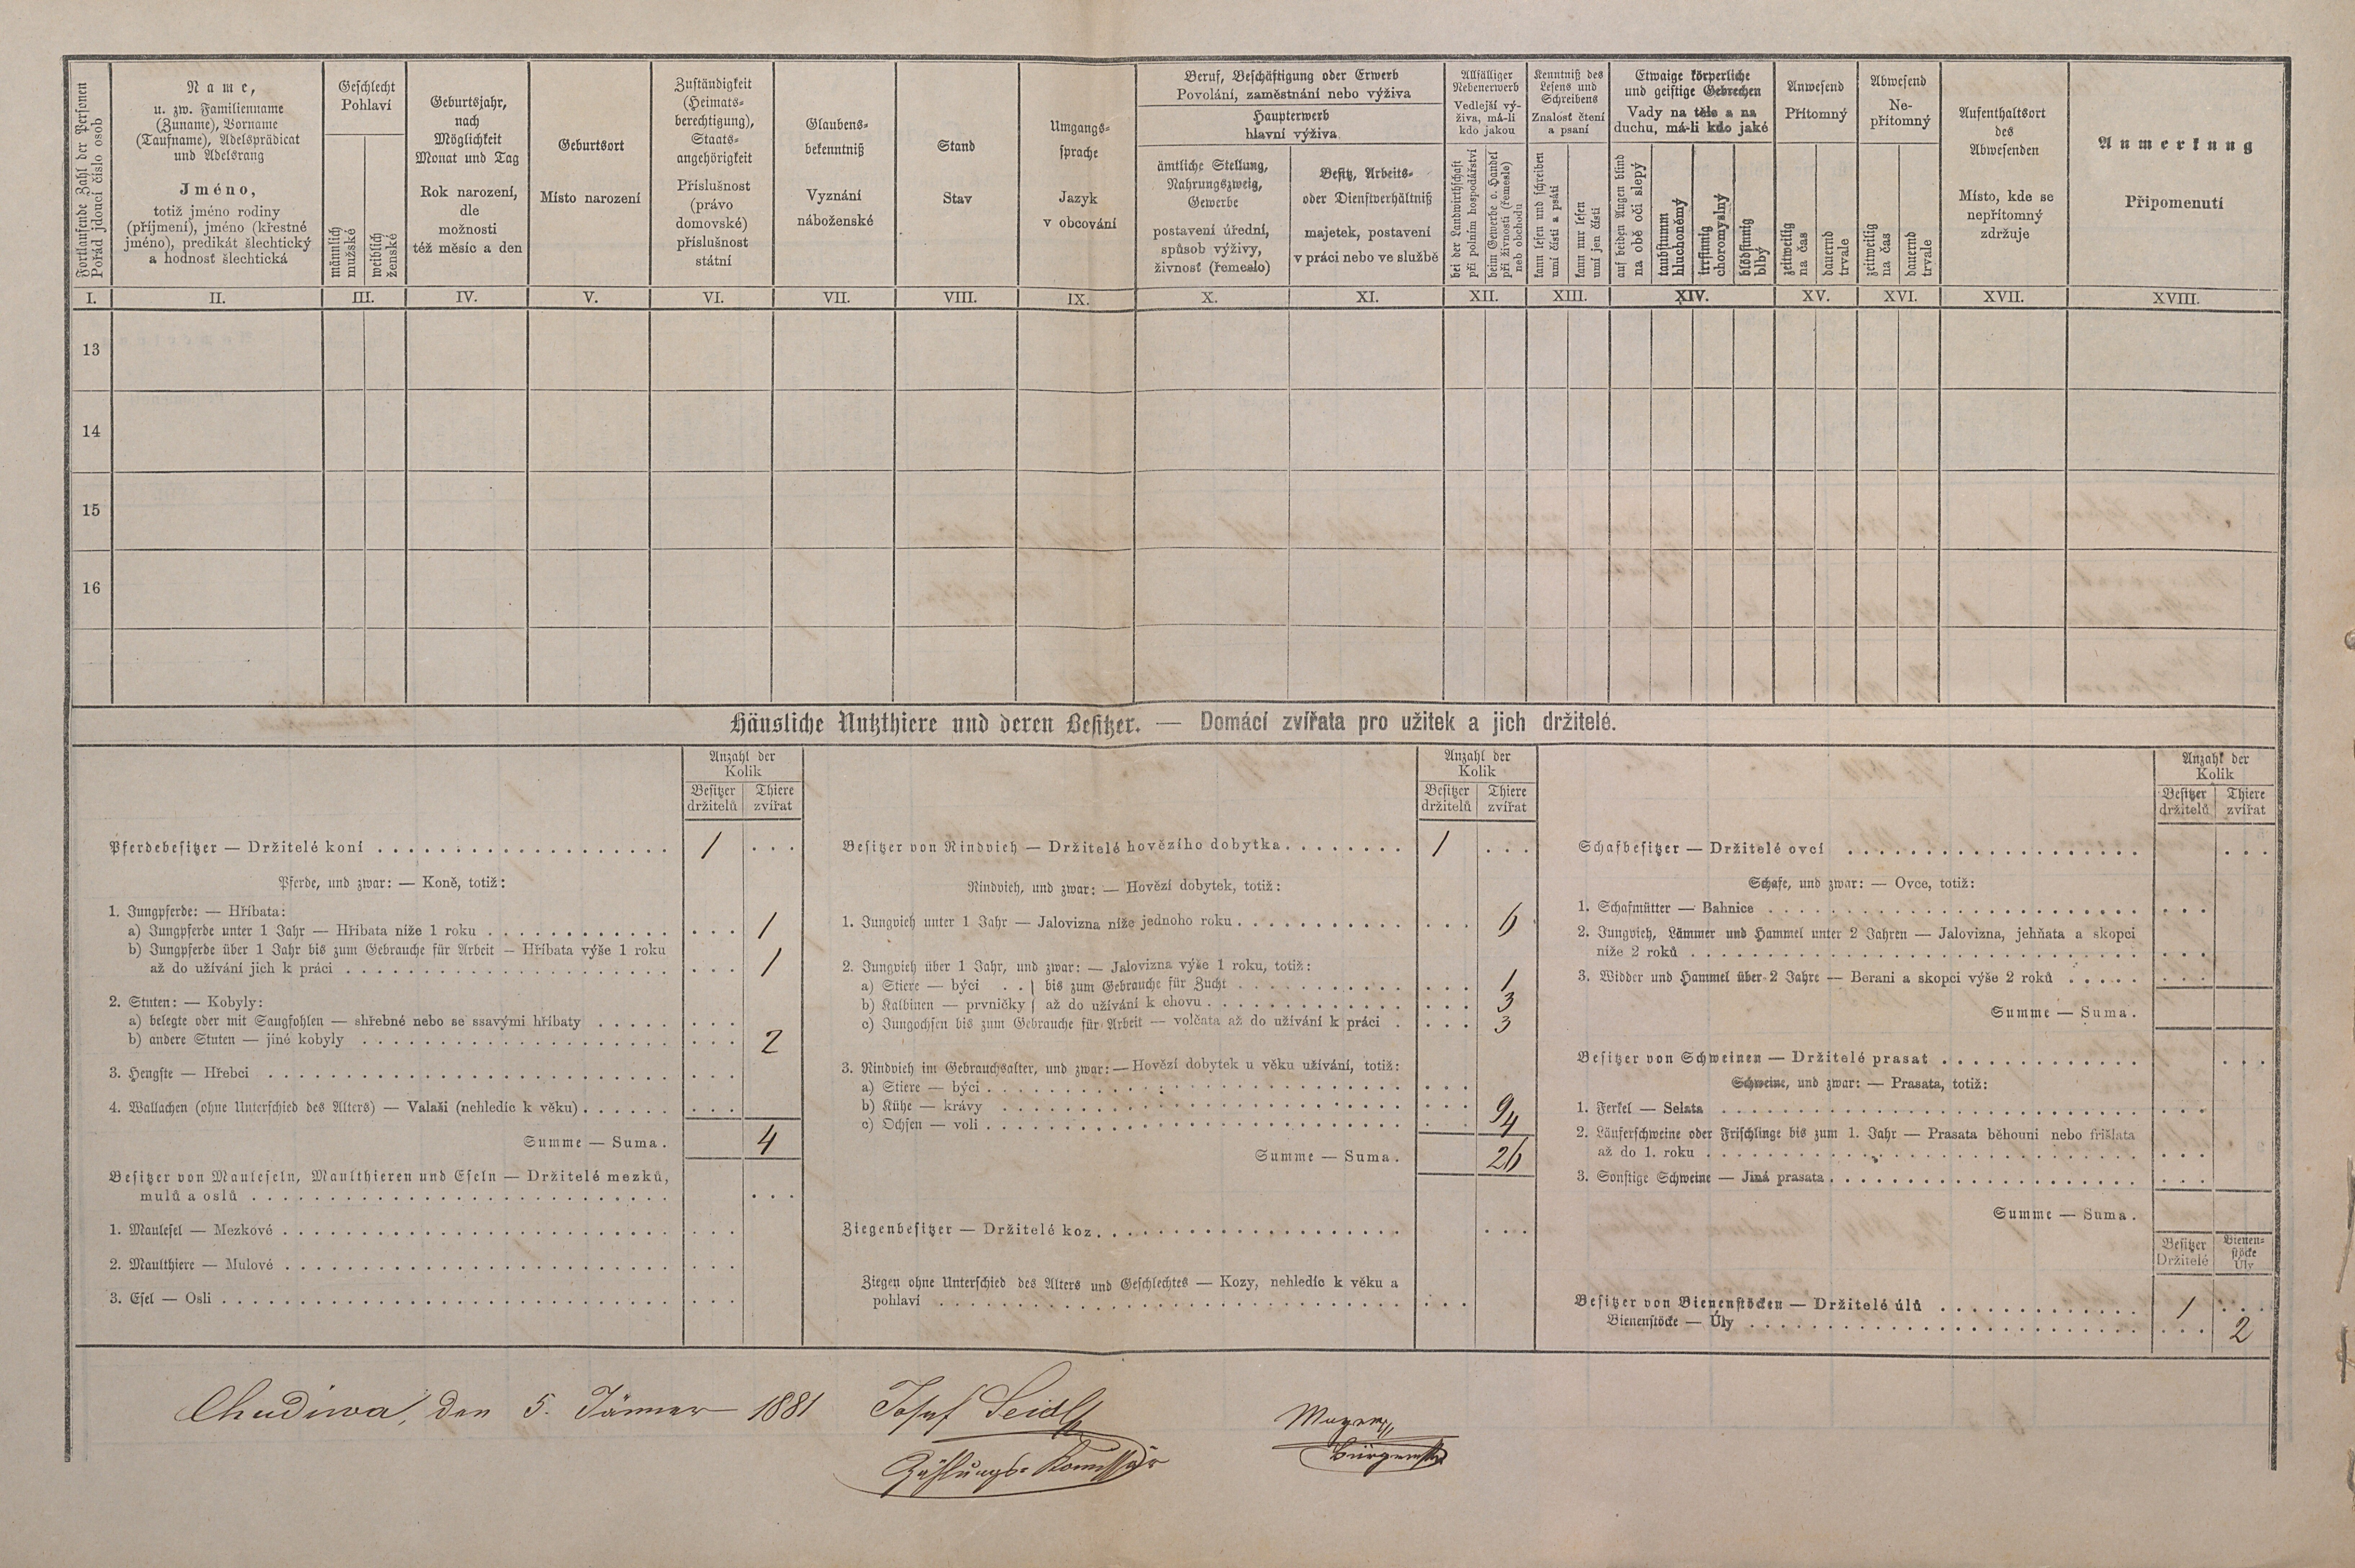 Fortlaufende Zahl der Personen
Pořád jdoucí číslo osob
Name,
u. zw. Familienname
(Zuname), Vorname
(Taufname), Adelsprädicat
und Adelsrang
Jméno,
totiž jméno rodiny
(příjmení), jméno (křestné
jméno), predikát šlechtický
a hodnosť šlechtická
Geschlecht
Pohlaví
männlich
mužské
weiblich
ženské
Geburtsjahr,
nach
Möglichkeit
Monat und Tag
Rok narození,
dle
možnosti
též měsíc a den
Geburtsort
Místo narození
Zuständigkeit
(Heimats-
berechtigung),
Staats-
angehörigkeit
Příslušnost
(právo
domovské)
příslušnost
státní
Glaubens-
bekenntniß
Vyznání
náboženské
Stand
Stav
Umgangs-
sprache
Jazyk
v obcování
Beruf, Beschäftigung oder Erwerb
Povolání, zaměstnání nebo výživa
Haupterwerb
hlavní výživa
ämtliche Stellung,
Nahrungszweig,
Gewerbe
postavení úřední,
spůsob výživy,
živnosť (řemeslo)
Besitz, Arbeits-
oder Dienstverhältniß
majetek, postavení
v práci nebo ve službě
Allfälliger
Nebenerwerb
Vedlejší vý-
živa, má-li
kdo jakou
bei der Landwirthschaft
při polním hospodářství
beim Gewerbe o. Handel
při živnosti (řemesle)
neb obchodu
Kenntniß des
Lesens und
Schreibens
Znalosť čtení
a psaní
kann lesen und schreiben
umí čísti a psáti
kann nur lesen
umí jen čísti
Etwaige körperliche
und geistige Gebrechen
Vady na těle a na
duchu, má-li kdo jaké
auf beiden Augen blind
na obě oči slepý
taubstumm
hluchoněmý
irrsinnig
choromyslný
blödsinnig
blbý
Anwesend
Přítomný
zeitweilig
na čas
dauernd
trvale
Abwesend
Ne-
přítomný
zeitweilig
na čas
dauernd
trvale
Aufenthaltsort
des
Abwesenden
Místo, kde se
nepřítomný
zdržuje
Anmerkung
Připomenutí
I. II. III. IV. V. VI. VII. VIII. IX. X. XI. XII. XIII. XIV. XV. XVI. XVII. XVIII.
13
14
15
16
Häusliche Nutzthiere und deren Besitzer. — Domácí zvířata pro užitek a jich držitelé.
Anzahl der
Kolik
Besitzer Thiere
držitelů zvířat
Pferdebesitzer — Držitelé koní 1
Pferde, und zwar: — Koně, totiž:
1. Jungpferde: — Hříbata:
a) Jungpferde unter 1 Jahr — Hříbata níže 1 roku 1
b) Jungpferde über 1 Jahr bis zum Gebrauche für Arbeit — Hříbata výše 1 roku
až do užívání jich k práci 1
2. Stuten: — Kobyly:
a) belegte oder mit Saugfohlen — shřebné nebo se ssavými hříbaty
b) andere Stuten — jiné kobyly 2
3. Hengste — Hřebci
4. Wallachen (ohne Unterschied des Alters) — Valaši (nehledíc k věku)
Summe — Suma. 4
Besitzer von Mauleseln, Maulthieren und Eseln — Držitelé mezků,
mulů a oslů
1. Maulesel — Mezkové
2. Maulthiere — Mulové
3. Esel — Osli
Anzahl der
Kolik
Besitzer Thiere
držitelů zvířat
Besitzer von Rindvieh — Držitelé hovězího dobytka 1
Rindvieh, und zwar: — Hovězí dobytek, totiž:
1. Jungvieh unter 1 Jahr — Jalovizna níže jednoho roku 6
2. Jungvieh über 1 Jahr, und zwar: — Jalovizna výše 1 roku, totiž:
a) Stiere — býci } bis zum Gebrauche für Zucht 1
b) Kalbinen — prvničky } až do užívání k chovu 3
c) Jungochsen bis zum Gebrauche für Arbeit — volčata až do užívání k práci 3
3. Rindvieh im Gebrauchsalter, und zwar: — Hovězí dobytek u věku užívání, totiž:
a) Stiere — býci
b) Kühe — krávy 9
c) Ochsen — voli 4
Summe — Suma. 26
Ziegenbesitzer — Držitelé koz
Ziegen ohne Unterschied des Alters und Geschlechtes — Kozy, nehledíc k věku a
pohlaví
Anzahl der
Kolik
Besitzer Thiere
držitelů zvířat
Schafbesitzer — Držitelé ovcí
Schafe, und zwar: — Ovce, totiž:
1. Schafmütter — Bahnice
2. Jungvieh, Lämmer und Hammel unter 2 Jahren — Jalovizna, jehňata a skopci
níže 2 roků
3. Widder und Hammel über 2 Jahre — Berani a skopci výše 2 roků
Summe — Suma.
Besitzer von Schweinen — Držitelé prasat
Schweine, und zwar: — Prasata, totiž:
1. Ferkel — Selata
2. Läuferschweine oder Frischlinge bis zum 1. Jahr — Prasata běhouni nebo frišlata
až do 1. roku
3. Sonstige Schweine — Jiná prasata
Summe — Suma.
Besitzer Bienen-
stöcke
Držitelé Úly
Besitzer von Bienenstöcken — Držitelé úlů 1
Bienenstöcke — Úly 2
Chudiwa, den 5. Jänner 1881 Josef Seidl
Zählungs-Komissär